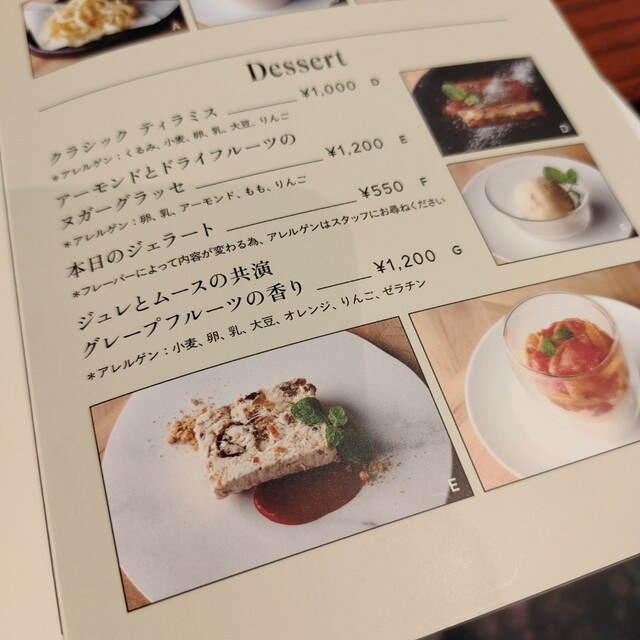 A
Dessert
クラシック ティラミス ¥1,000 D
*アレルゲン：くるみ、小麦、卵、乳、大豆、りんご
アーモンドとドライフルーツの
ヌガーグラッセ ¥1,200 E
*アレルゲン：卵、乳、アーモンド、もも、りんご
本日のジェラート ¥550 F
*フレーバーによって内容が変わる為、アレルゲンはスタッフにお尋ねください
ジュレとムースの共演
グレープフルーツの香り ¥1,200 G
*アレルゲン：小麦、卵、乳、大豆、オレンジ、りんご、ゼラチン
D
E